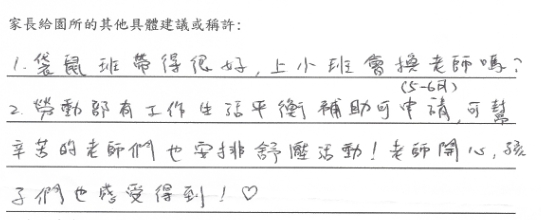 家長給園所的其他具體建議或稱許:
1. 袋鼠班帶得很好, 上小班會換老師嗎?
(5-6月)
2. 勞動部有工作生活平衡補助可申請, 可幫
辛苦的老師們也安排舒壓活動! 老師開心, 孩
子們也感受得到! ♡